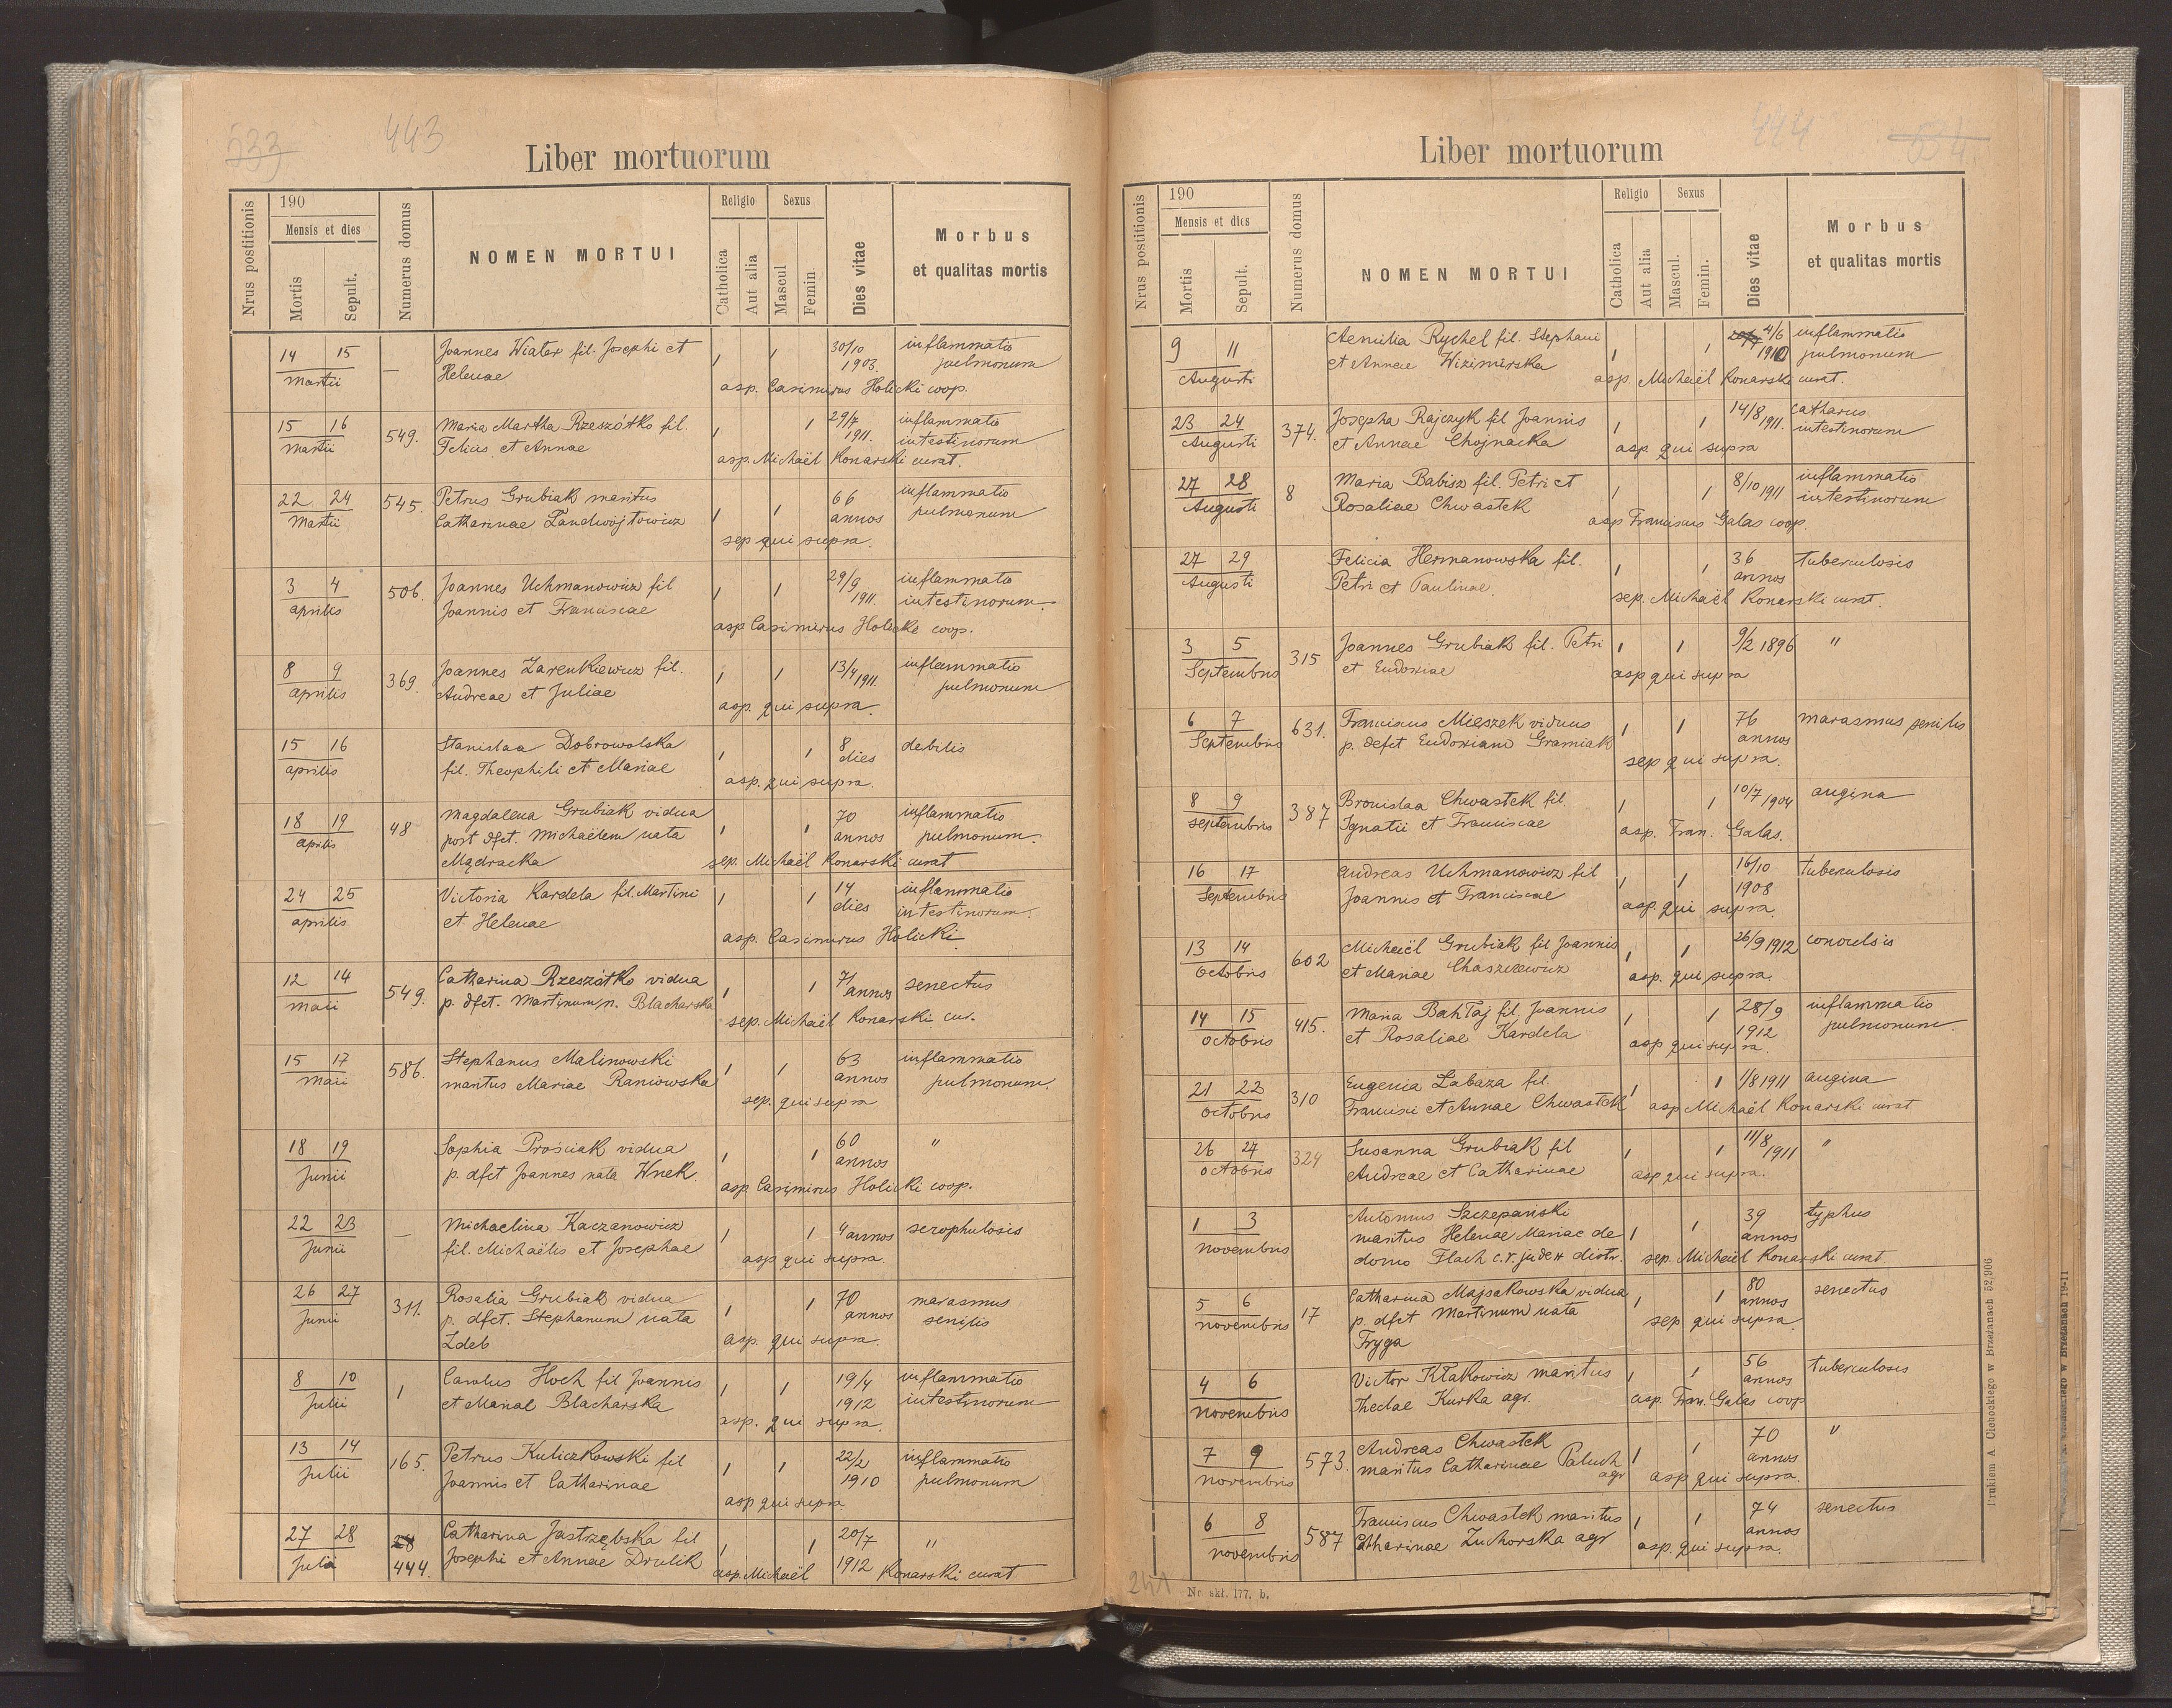 533 443
Liber mortuorum
Nrus postitionis
190
Mensis et dies
Mortis
Sepult.
Numerus domus
NOMEN MORTUI
Religio
Catholica
Aut alia
Sexus
Mascul
Femin.
Dies vitae
Morbus
et qualitas mortis
14 15 Joannes Wiater fil. Josephi et 1 1 30/10 inflammatio
Martii — Helenae 1903. pulmonum
asp. Casimirus Holicki coop.
15 16 549. Maria Martha Rzeszótko fil. 1 1 29/7 inflammatio
Martii Felicis et Annae 1911. intestinorum
asp. Michaël Konarski curat.
22 24 545. Petrus Grubiak maritus 1 1 66 inflammatio
Martii Catharinae Landwójtowicz annos pulmonum
sep qui supra.
3 4 506. Joannes Uchmanowicz fil 1 1 29/9 inflammatio
aprilis Joannis et Franciscae 1911. intestinorum.
asp Casimirus Holicki coop.
8 9 369. Joannes Zarenkiewicz fil. 1 1 13/4 inflammatio
aprilis Andreae et Juliae 1911. pulmonum
asp. qui supra.
15 16 Stanislaa Dobrowolska 1 1 8 debilis
aprilis fil. Theophili et Mariae dies
asp. qui supra.
18 19 48 Magdalena Grubiak vidua 1 1 70 inflammatio
aprilis post dfct. Michaëlem nata annos pulmonum.
Mądracka sep. Michaël Konarski curat
24 25 Victoria Kardela fil. Martini 1 1 14 inflammatio
aprilis et Helenae dies intestinorum.
asp. Casimirus Holicki.
12 14 549. Catharina Rzeszótko vidua 1 1 71 senectus
maii p. dfct. Martinum n. Blacharska annos
sep. Michaël Konarski cur.
15 17 586. Stephanus Malinowski 1 1 63 inflammatio
maii maritus Mariae Raniowska annos pulmonum.
sep. qui supra
18 19 Sophia Prościak vidua 1 1 60 "
Junii p. dfct Joannes nata Wnek. annos
asp Casimirus Holicki coop.
22 23 — Michaelina Kaczanowicz 1 1 4 annos scrophulosis
Junii fil. Michaëlis et Josephae
asp qui supra.
26 27 311. Rosalia Grubiak vidua 1 1 70 marasmus
Junii p. dfct. Stephanum nata annos senilis
Zdeb asp. qui supra.
8 10 1 Carolus Hoch fil Joannis 1 1 19/4 inflammatio
Julii et Mariae Blacharska 1912 intestinorum
asp. qui supra.
13 14 165. Petrus Kuliczkowski fil 1 1 22/2 inflammatio
Julii Joannis et Catharinae 1910 pulmonum
asp qui supra
27 28 28 Catharina Jastrzębska fil 1 1 20/7 "
Julii 444. Josephi et Annae Drulik 1912
asp. Michaël Konarski curat
444 534
Liber mortuorum
Nrus postitionis
190
Mensis et dies
Mortis
Sepult.
Numerus domus
NOMEN MORTUI
Religio
Catholica
Aut alia
Sexus
Mascul.
Femin.
Dies vitae
Morbus
et qualitas mortis
9 11 Aemilia Rychel fil. Stephani 1 1 4/6 inflammatio
Augusti et Annae Wizimirska 1910 pulmonum
asp. Michaël Konarski curat.
23 24 374. Josepha Rajczyk fil Joannis 1 1 14/8 1911. catharus
Augusti et Annae Chojnacka intestinorum
asp qui supra
27 28 8 Maria Babisz fil. Petri et 1 1 8/10 1911 inflammatio
Augusti Rosaliae Chwastek intestinorum
asp Franciscus Galas coop.
27 29 Felicia Hermanowska fil. 1 1 36 tuberculosis
Augusti Petri et Paulinae. annos
sep. Michaël Konarski curat.
3 5 315 Joannes Grubiak fil. Petri 1 1 9/2 1896 "
Septembris et Eudoxiae
asp qui supra
6 7 631. Franciscus Mięszek viduus 1 1 76 marasmus senilis
Septembris p. defct Eudoxiam Gramiak annos
sep qui supra.
8 9 387 Bronislaa Chwastek fil. 1 1 10/7 1904 angina
septembris Ignatii et Franciscae
asp. Fran. Galas.
16 17 Andreas Uchmanowicz fil 1 1 16/10 tuberculosis
Septembris Joannis et Franciscae 1908
asp. qui supra.
13 14 602 Michaël Grubiak fil Joannis 1 1 26/9 1912 convulsis
octobris et Mariae Chaszczewicz
asp. qui supra.
14 15 415. Maria Bahłaj fil. Joannis 1 1 28/9 inflammatio
octobris et Rosaliae Kardela 1912 pulmonum.
asp qui supra.
21 22 310 Eugenia Łabaza fil. 1 1 1/8 1911 angina
octobris Francisci et Annae Chwastek
asp Michaël Konarski curat
26 27 324 Susanna Grubiak fil 1 1 11/8 1911 "
octobris Andreae et Catharinae
asp qui supra.
1 3 Antonius Szczepański 1 1 39 typhus
novembris maritus Helenae Mariae de annos
domo Flach c. r. judex distr. sep. Michaël Konarski curat.
5 6 17 Catharina Majsakowska vidua 1 1 80 senectus
novembris p. dfct Martinum nata annos
Fryga sep qui supra.
4 6 Victor Kłakowicz maritus 1 1 56 tuberculosis
novembris Theclae Kurka agr. annos
asp. Fran. Galas coop
7 9 573. Andreas Chwastek 1 1 70 "
novembris maritus Catharinae Paluch agr annos
asp qui supra.
6 8 587 Franciscus Chwastek maritus 1 1 74 senectus
novembris Catharinae Zuchorska agr annos
asp. qui supra.
241
Nr skł. 177. b.
Drukiem A Cichockiego w Brzeżanach 52,906
w Brzeżanach 19-11